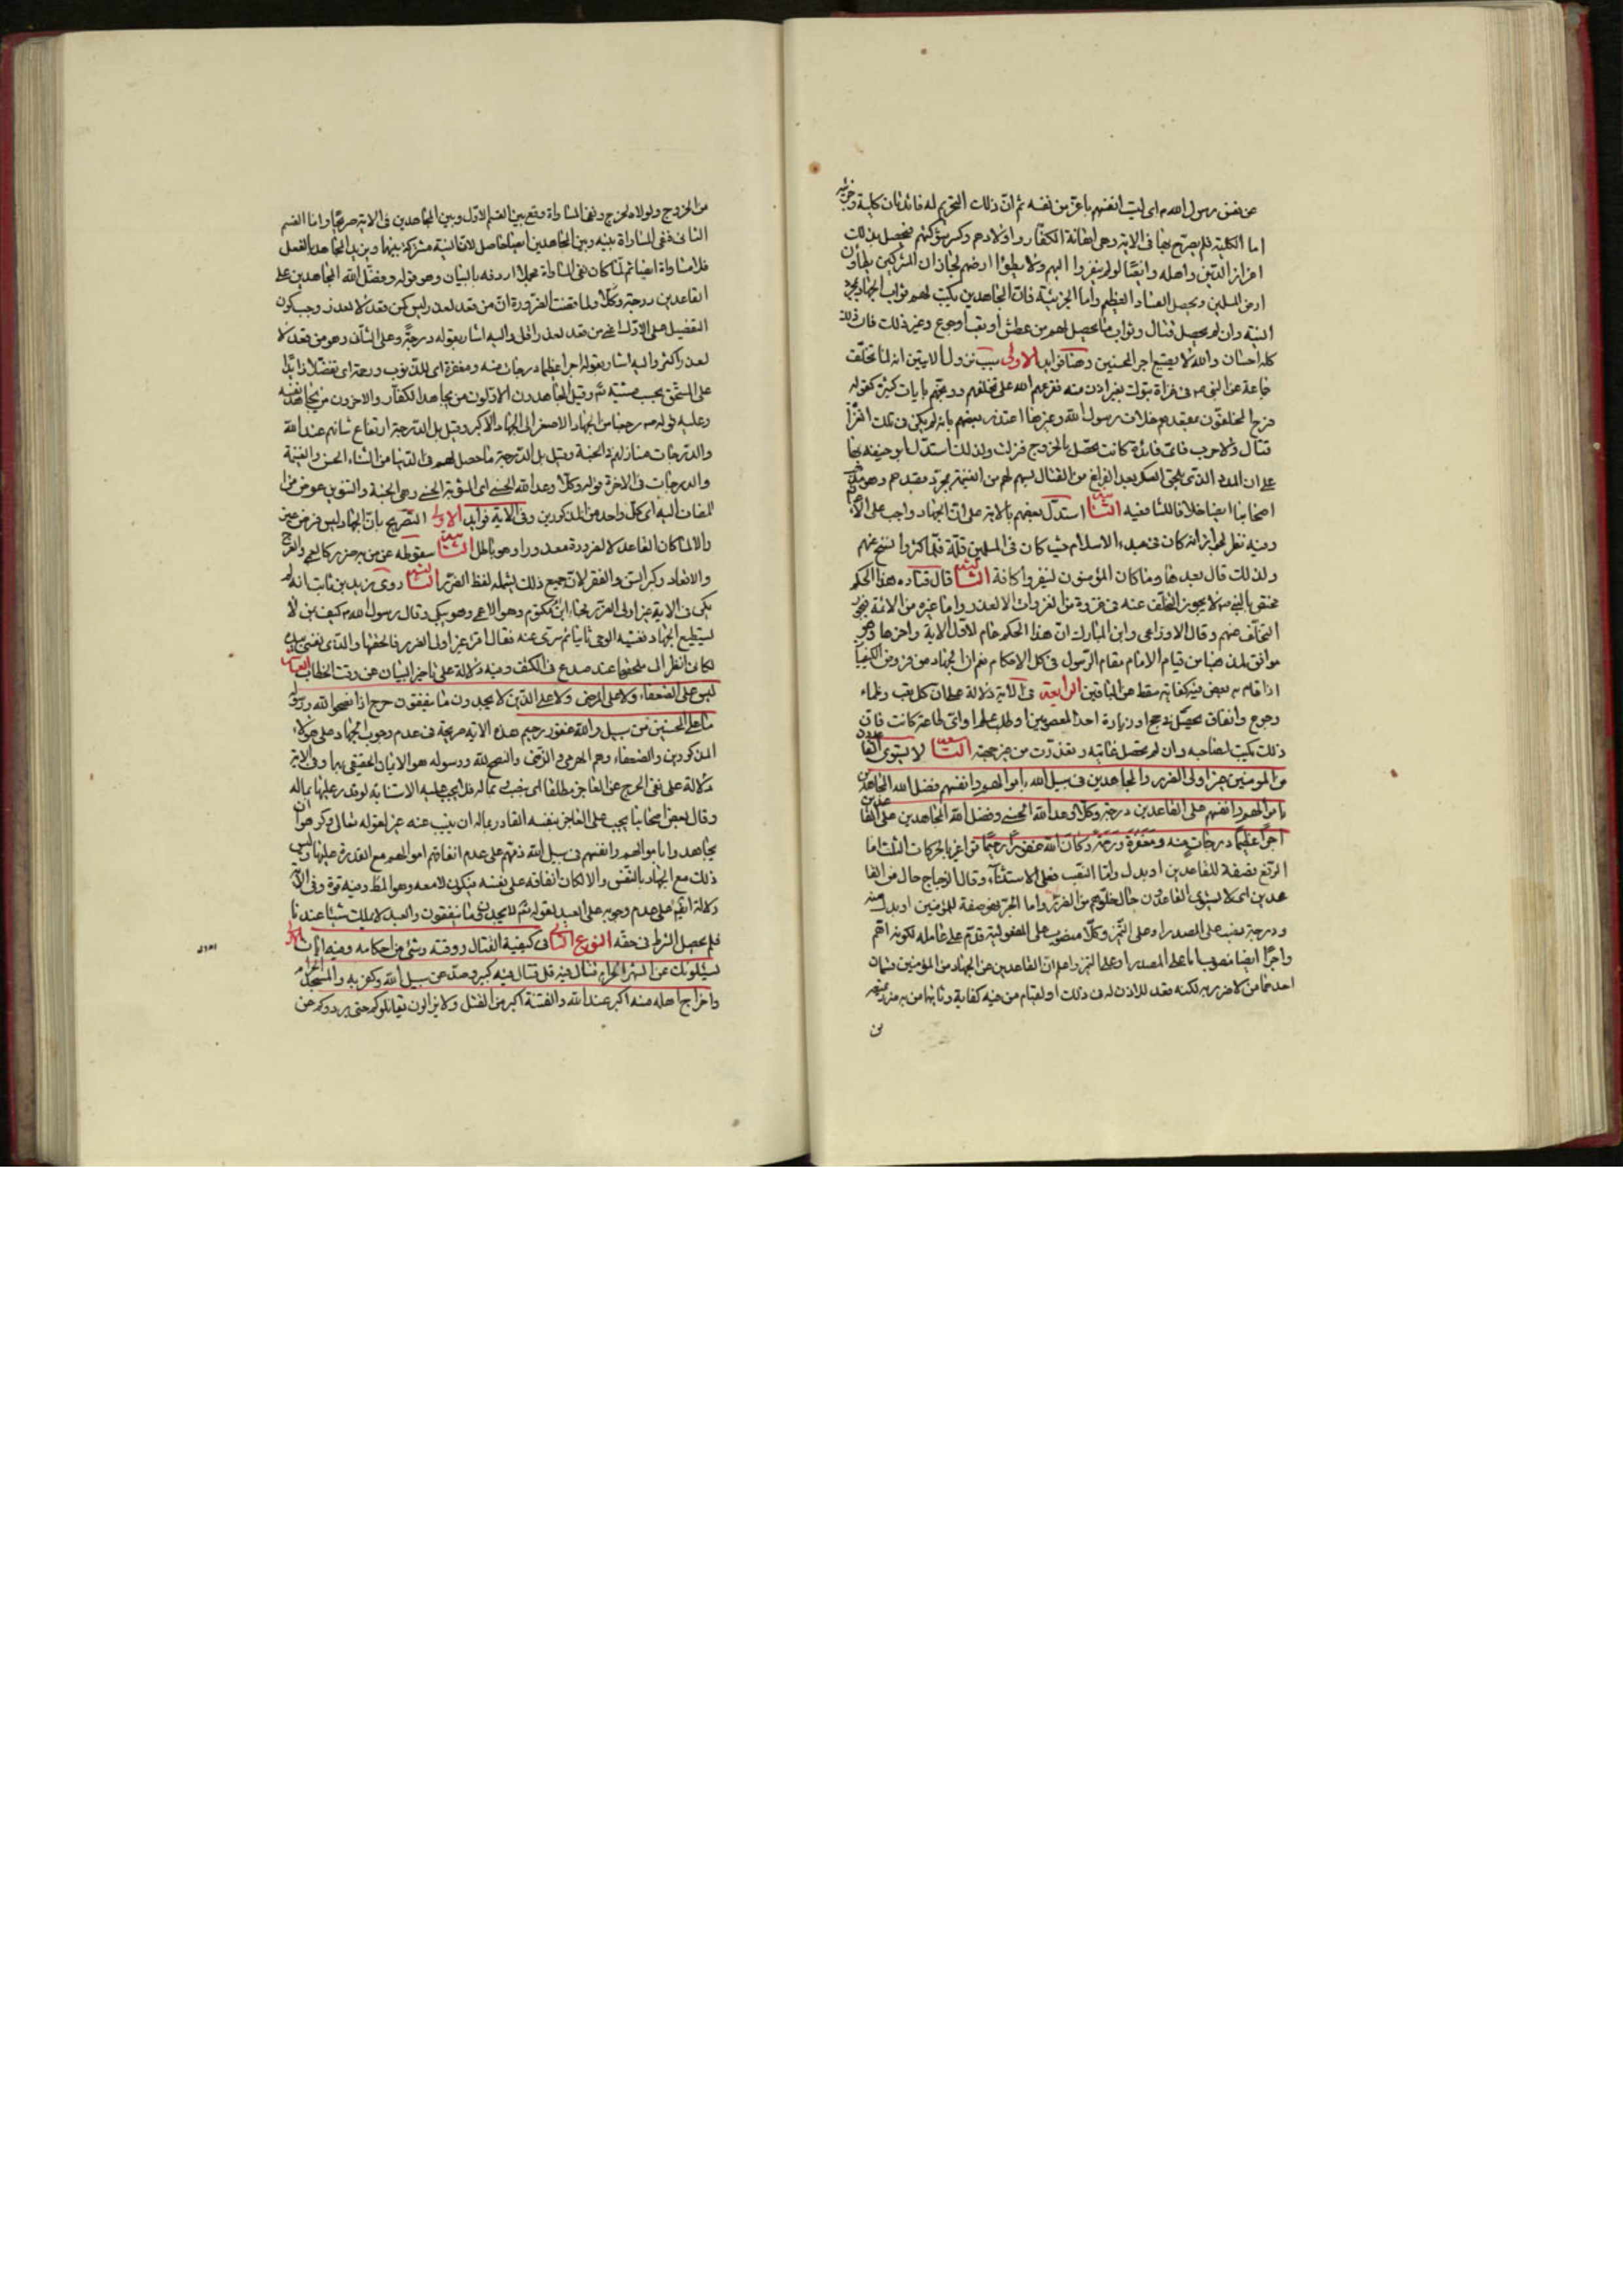 عن نفس رسول الله ص اى ليست انفسهم باعز من نفسه ثم ان ذلك التحريم له فائدتان كلية وجزئية
اما الكلية فلم يصرح بها فى الاية وهى اهانة الكفار واولادهم وكسر شوكتهم فيحصل بذلك
اعزاز الدين واهله وايضا لو لم ينفروا اليهم ولا يطؤا ارضهم لجاز ان المشركين يطاون
ارض المسلمين ويحصل الفساد العظيم واما الجزئية فان المجاهدين يكتب لهم ثواب الجهاد بمجرد
النية وان لم يحصل قتال وثواب ما يحصل لهم من عطش او تعب او جوع وغير ذلك فان ذلك
كله احسان والله لا يضيع اجر المحسنين وهنا فوايد الاولى سبب نزول الايتين انه لما تخلف
جماعة عن النبى ص فى غزاة تبوك بغير اذن منه فقرعهم الله على تخلفهم ووبخهم بايات كثيرة كقوله
فرح المخلفون بمقعدهم خلاف رسول الله وغيرها اعتذر بعضهم بانه لم يكن فى تلك الغزاة
قتال ولا حرب فاى فائدة كانت تحصل بالخروج فنزلت ولذلك استدل ابو حنيفة بها
على ان المدد الذى يلحق العسكر بعد الفراغ من القتال يسهم لهم من الغنيمة بمجرد مقدمهم وهو مذهب
اصحابنا ايضا خلافا للشافعى فيه الثانية استدل بعضهم بالاية على ان الجهاد واجب على الاعيان
وفيه نظر لجواز انه كان فى مبدء الاسلام حيث كان فى المسلمين قلة فلما كثروا نسخ عنهم
ولذلك قال بعدها وما كان المؤمنون لينفروا كافة الثالثة قال قتادة هذا الحكم
مختص بالنبى ص لا يجوز التخلف عنه فى غزوة من الغزوات الا لعذر واما غيره من الائمة فيجوز
التخلف عنهم وقال الاوزاعى وابن المبارك ان هذا الحكم عام لاول الاية واخرها وهو
موافق لمذهبنا من قيام الامام مقام الرسول فى كل الاحكام نعم ان الجهاد من فروض الكفايات
اذا قام به بعض فيه كفاية سقط عن الباقين الرابعة فى الاية دلالة على ان كل تعب وظماء
وجوع وانفاق يحصل فى حج او زيارة احد المعصومين او طلب علم او اى طاعة كانت فان
ذلك يكتب لصاحبه وان لم تحصل غايته وتعذرت من غير جهته التاسعة لا يستوى القاعدون
من المومنين غير اولى الضرر والمجاهدين فى سبيل الله باموالهم وانفسهم فضل الله المجاهدين
باموالهم وانفسهم على القاعدين درجة وكلا وعد الله الحسنى وفضل الله المجاهدين على القاعدين
اجرا عظيما درجات منه ومغفرة ورحمة وكان الله غفورا رحيما قرا غير بالحركات الثلث اما
الرفع فصفة للقاعدين او بدل واما النصب فعلى الاستثناء وقال الزجاج حال من القا
عدين اى لا يستوى القاعدون حال خلوهم من الضرر واما الجر فصفة للمؤمنين او بدل منه
ودرجة نصب على المصدر او على التميز وكلا منصوب على المفعولية قدم على عامله لكونه اهم
واجرا ايضا منصوب اما على المصدر او على التميز واعلم ان القاعدين عن الجهاد من المؤمنين قسمان
احدهما من لا ضرر به لكنه قعد للاذن له فى ذلك او لقيام من فيه كفاية وثانيهما من به ضرر يمنعه
من
من الخروج ولولاه لخرج ونفى المساواة وقع بين القسم الاول وبين المجاهدين فى الاية صريحا واما القسم
الثانى فنفى المساواة بينه وبين المجاهدين ايضا حاصل لان النية مشتركة بينهما ويزيد المجاهد بالفعل
فلا مساواة ايضا ثم لما كان نفى المساواة مجملا اردفه بالبيان وهو قوله وفضل الله المجاهدين على
القاعدين درجة وكلا ولما قضت الضرورة ان من قعد لعذر ليس كمن قعد لا لعذر وجب كون
التفضيل على الاول اعنى من قعد لعذر اقل واليه اشار بقوله درجة وعلى الثانى وهو من قعد لا
لعذر اكثر واليه اشار بقوله اجرا عظيما درجات منه ومغفرة اى للذنوب ورحمة اى تفضلا زايدا
على المستحق بحسب مشيته تم وقيل المجاهدون الاولون من يجاهد الكفار والاخرون من يجاهد نفسه
وعليه قوله ص رجعنا من الجهاد الاصغر الى الجهاد الاكبر وقيل بل الدرجة ارتفاع شانهم عند الله
والدرجات منازلهم فى الجنة وقيل بل الدرجة ما حصل لهم فى الدنيا من الثناء الحسن والغنيمة
والدرجات فى الاخرة قوله وكلا وعد الله الحسنى اى المثوبة الحسنى وهى الجنة والتنوين عوض من
المضاف اليه اى كل واحد من المذكورين وفى الاية فوايد الاولى التصريح بان الجهاد ليس فرض عين
والا لما كان القاعد لا لضرورة معذورا وهو باطل الثانية سقوطه عن من به ضرر كالعمى والعرج
والاقعاد وكبر السن والفقر لان جميع ذلك يشمله لفظ الضرر الثالثة روى زيد بن ثابت انه لم
يكن فى الاية غير اولى الضرر فجاء ابن ام مكتوم وهو الاعمى وهو يبكى وقال رسول الله ص كيف بمن لا
يستطيع الجهاد فغشيه الوحى ثانيا ثم سرى عنه فقال اقرا غير اولى الضرر فالحقها والذى نفسى بيده
لكانى انظر الى ملحقها عند صدع فى الكتف وفيه دلالة على تاخير البيان عن وقت الخطاب العاشرة
ليس على الضعفاء ولا على المرضى ولا على الذين لا يجدون ما ينفقون حرج اذا نصحوا لله ورسوله
ما على المحسنين من سبيل والله غفور رحيم هذه الاية صريحة فى عدم وجوب الجهاد على هؤلاء
المذكورين والضعفاء وهم الهرمى والزمنى والنصح لله ورسوله هو الايمان الحقيقى بهما وفى الاية
دلالة على نفى الحرج عن العاجز مطلقا اى بنفسه وبماله فلا يجب عليه الاستنابة لو قدر عليها بماله
وقال بعض اصحابنا يجب على العاجز بنفسه القادر بماله ان ينيب عنه غيره لقوله تعالى وكرهوا ان
يجاهدوا باموالهم وانفسهم فى سبيل الله ذمهم على عدم انفاقهم اموالهم مع القدرة عليها وليس
ذلك مع الجهاد بالنفس والا لكان انفاقه على نفسه فيكون لا معه وهو المط وفيه قوة وفى الاية
دلالة ايضا على عدم وجوبه على العبد لقوله تم لا يجدون ما ينفقون والعبد لا يملك شيئا عندنا
فلم يحصل الشرط فى حقه النوع الثانى فى كيفية القتال ووقته وشئ من احكامه وفيه ايات الاولى
يسئلونك عن الشهر الحرام قتال فيه قل قتال فيه كبير وصد عن سبيل الله وكفر به والمسجد الحرام
واخراج اهله منه اكبر عند الله والفتنة اكبر من القتل ولا يزالون يقاتلونكم حتى يردوكم عن